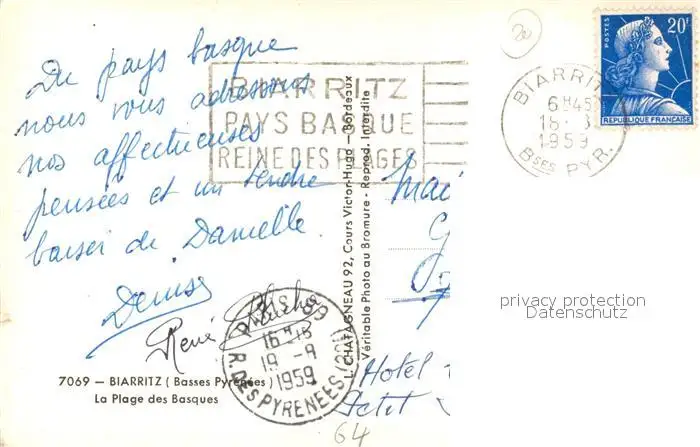 Du pays basque
nous vous adressons
nos affectueuses
pensées et un tendre
baiser de Danielle.
Denise
René
BIARRITZ
PAYS BASQUE
REINE DES PLAGES
7069 — BIARRITZ (Basses Pyrénées)
La Plage des Basques
L. CHATAGNEAU 92, Cours Victor-Hugo - Bordeaux
Véritable Photo au Bromure - Reprod. Interdite
POSTES
20F
REPUBLIQUE FRANÇAISE
BIARRITZ
6H45
18
1959
Bses PYR.
16H
19 - 9
1959
R. DES PYRENEES
Hotel
64
privacy protection
Datenschutz